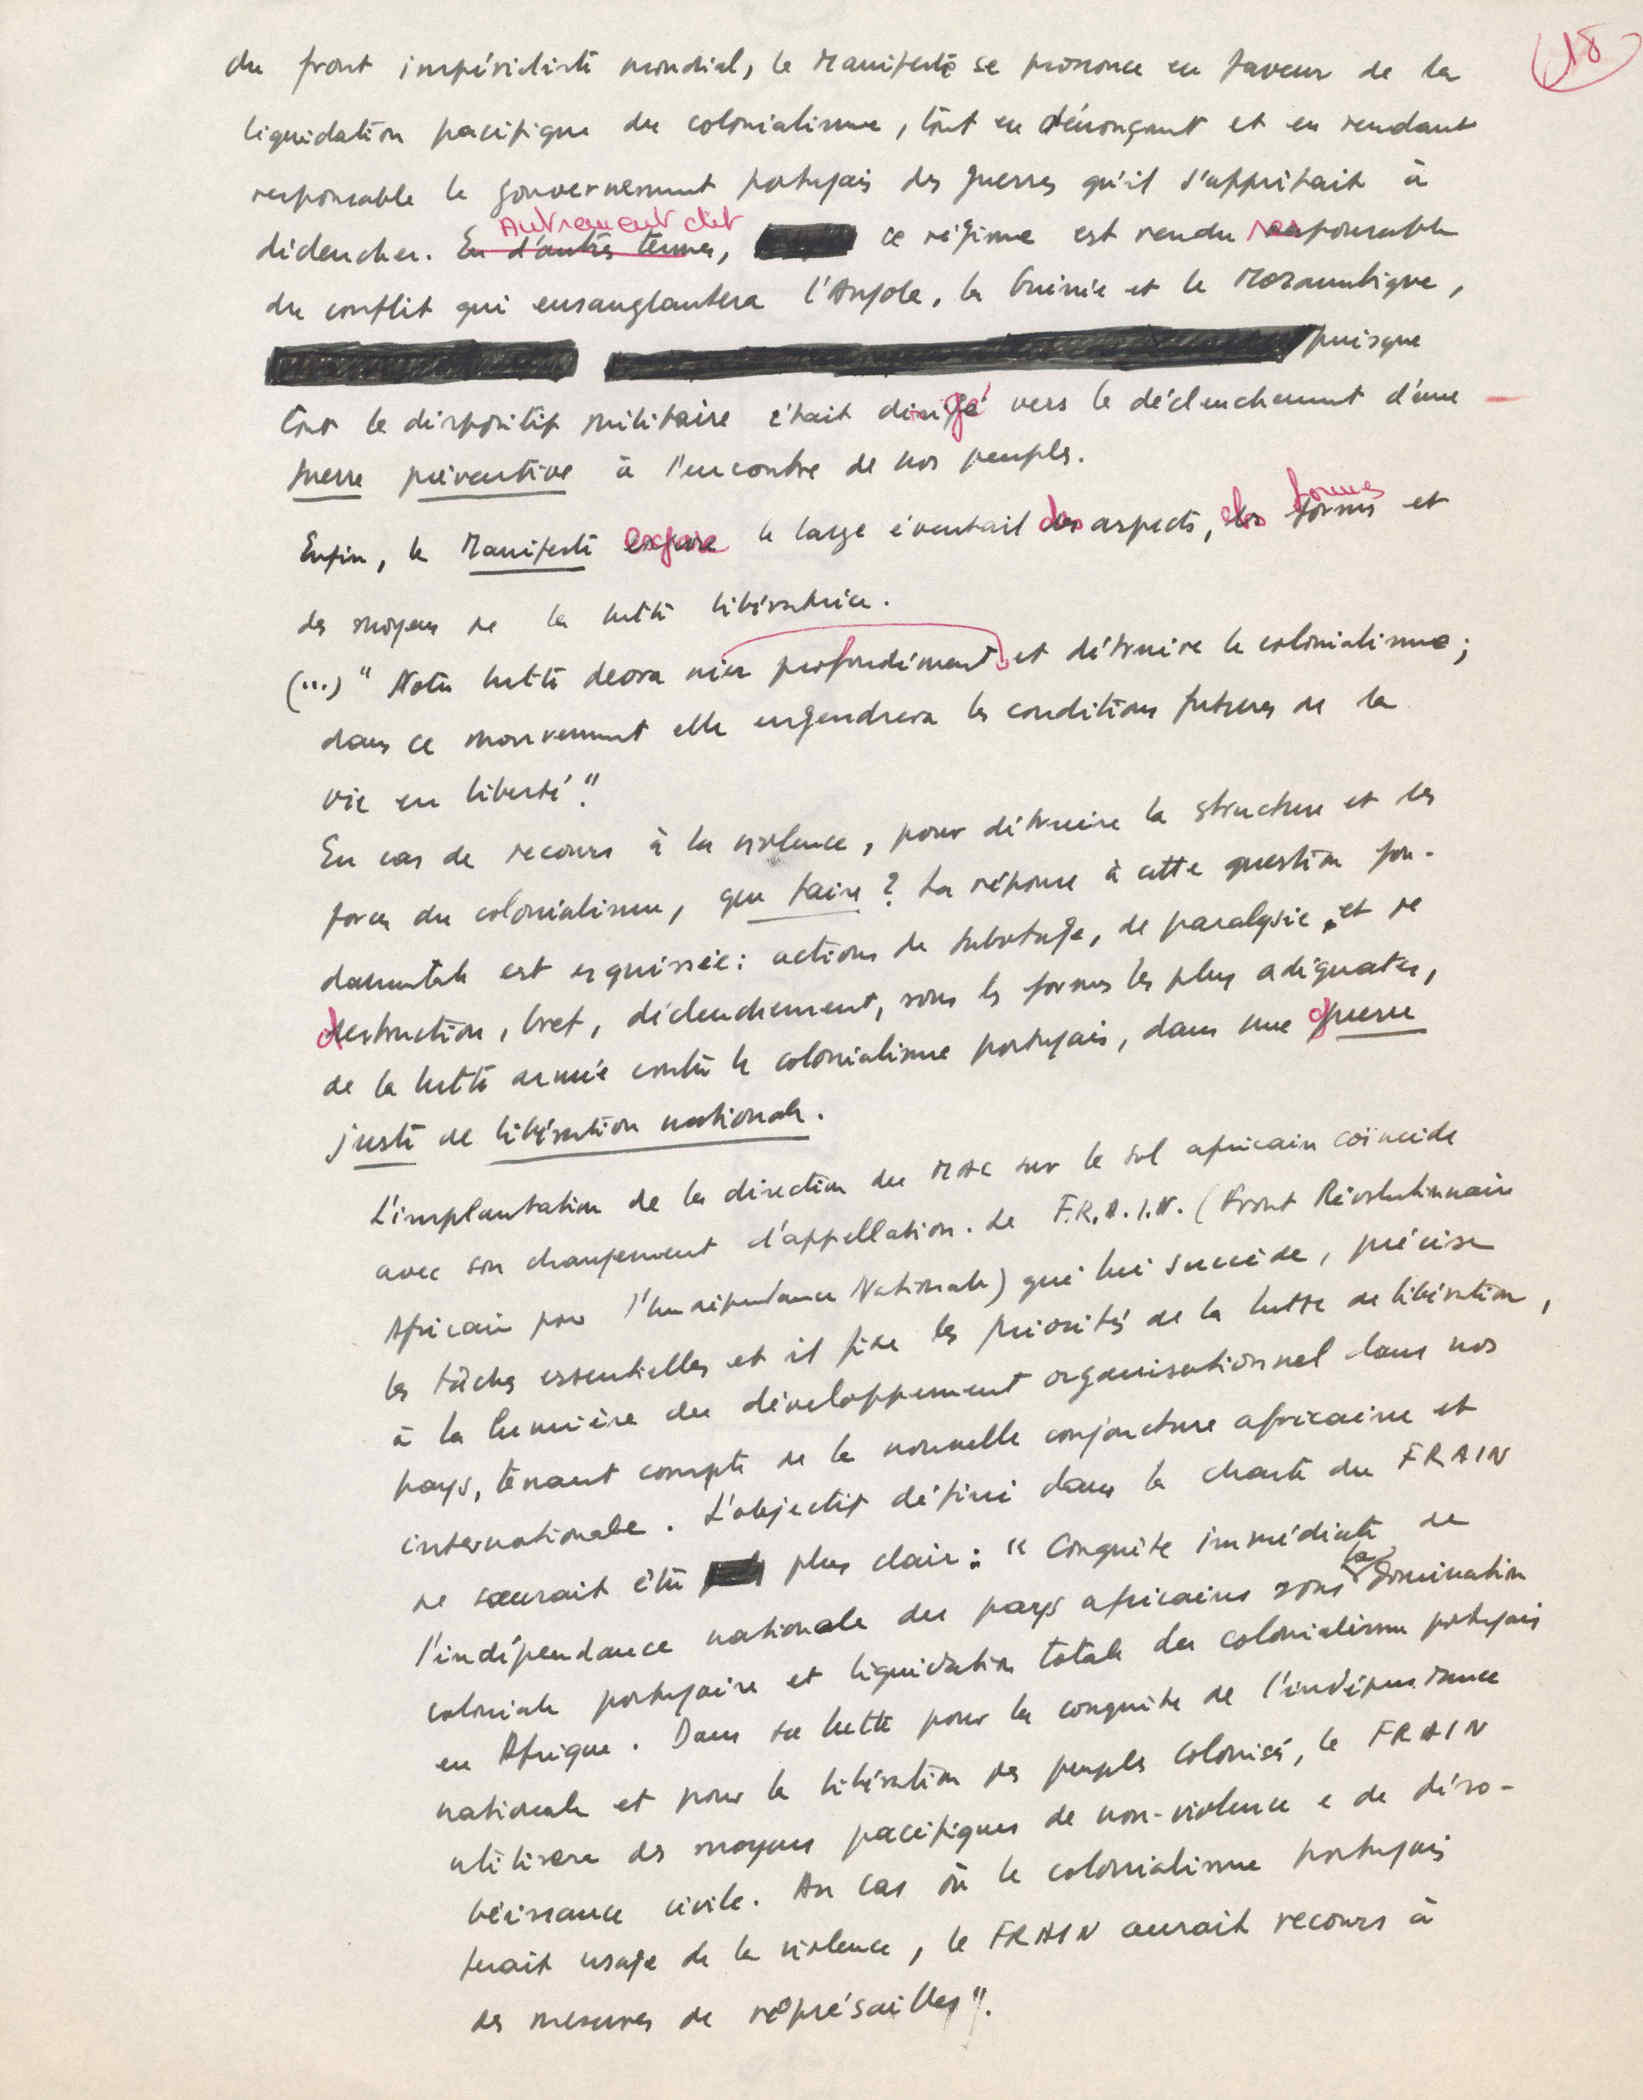 18
du front impérialiste mondial, le Manifeste se prononce en faveur de la
liquidation pacifique du colonialisme, tout en dénonçant et en rendant
responsable le gouvernement portugais des guerres qu'il s'apprêtait à
déclencher. En d'autres termes, Autrement dit ce régime est rendu responsable
du conflit qui ensanglantera l'Angola, la Guinée et le Mozambique,
puisque
tout le dispositif militaire était dirigé vers le déclenchement d'une
guerre préventive à l'encontre de nos peuples.
Enfin, le Manifeste expose le large éventail des aspects, des formes et
des moyens de la lutte libératrice.
(...) " Notre lutte devra nier profondément et détruire le colonialisme;
dans ce mouvement elle engendrera les conditions futures de la
vie en liberté".
En cas de recours à la violence, pour détruire la structure et les
forces du colonialisme, que faire? La réponse à cette question fon-
damentale est esquissée: actions de sabotage, de paralysie et de
destruction, bref, déclenchement, sous les formes les plus adéquates,
de la lutte armée contre le colonialisme portugais, dans une guerre
juste de libération nationale.
L'implantation de la direction du MAC sur le sol africain coïncide
avec son changement d'appellation. Le F.R.A.I.N. (Front Révolutionnaire
Africain pour l'Indépendance Nationale) qui lui succède, précise
les tâches essentielles et il fixe les priorités de la lutte de libération,
à la lumière du développement organisationnel dans nos
pays, tenant compte de la nouvelle conjoncture africaine et
internationale. L'objectif défini dans la charte du FRAIN
ne saurait être plus clair: " Conquête immédiate de
l'indépendance nationale des pays africains sous la domination
coloniale portugaise et liquidation totale du colonialisme portugais
en Afrique. Dans sa lutte pour la conquête de l'indépendance
nationale et pour la libération des peuples colonisés, le FRAIN
utilisera des moyens pacifiques de non-violence e de déso-
béissance civile. Au cas où le colonialisme portugais
ferait usage de la violence, le FRAIN aurait recours à
des mesures de représailles".